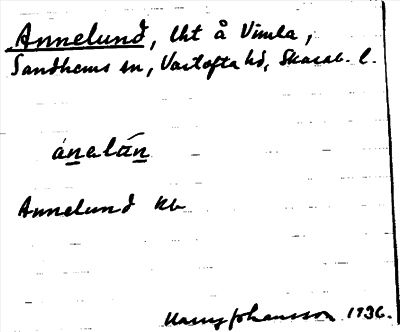 Annelund, lht å Vimla,
Sandhems sn, Vartofta hd, Skarab. l.
ánalùn
Annelund kb
Harry Johansson 1936.